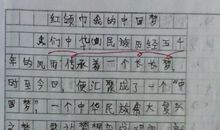 红领巾的中国梦
我们中华民族历经五千
年的风雨传承着一个长长梦
时至今日，便汇聚成了一个“中
国梦，一个中华民族伟大复兴